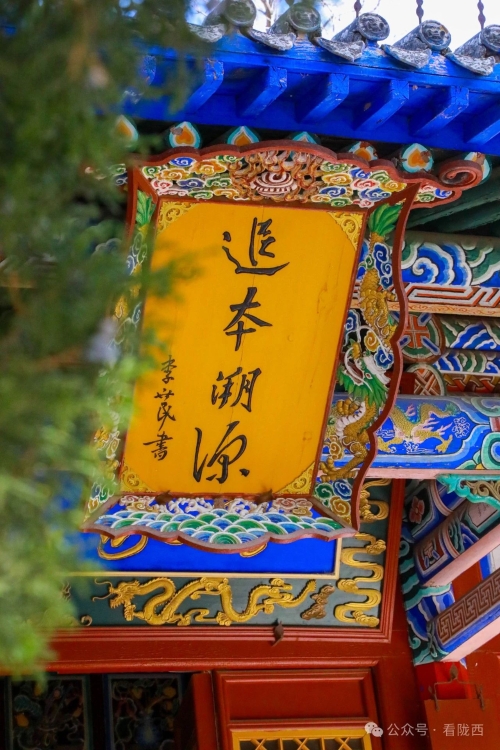 追本溯源
李茂书
公众号·看陇西